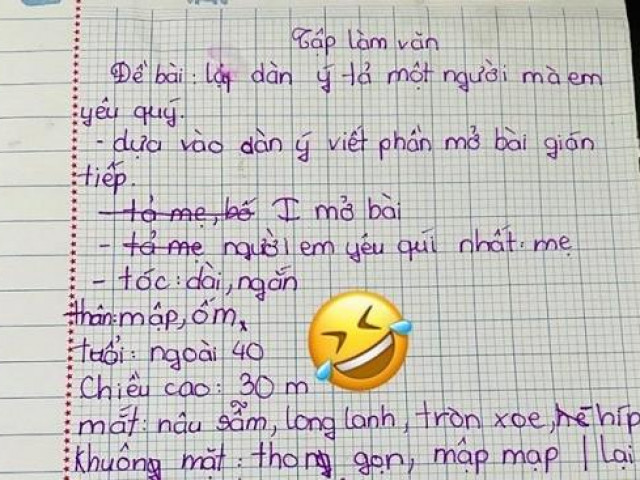 Tập làm văn
Đề bài: lập dàn ý tả một người mà em
yêu quý.
- dựa vào dàn ý viết phần mở bài gián
tiếp.
- tả mẹ, bố I mở bài
- tả mẹ người em yêu quí nhất: mẹ
- tóc: dài, ngắn
thân: mập, ốm,
tuổi: ngoài 40
Chiều cao: 30 m
mắt: nâu sẫm, long lanh, tròn xoe, híp
khuông mặt: thong gọn, mập mạp | lại